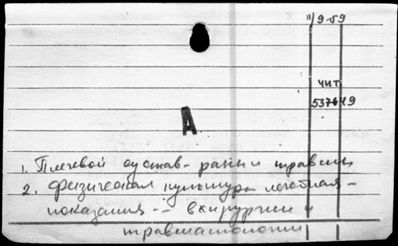 11/9-59
чит
537649
А
1. Плечевой сустав - раны и травмы
2. Физическая культура лечебная -
показания -- в хирургии и
травматологии